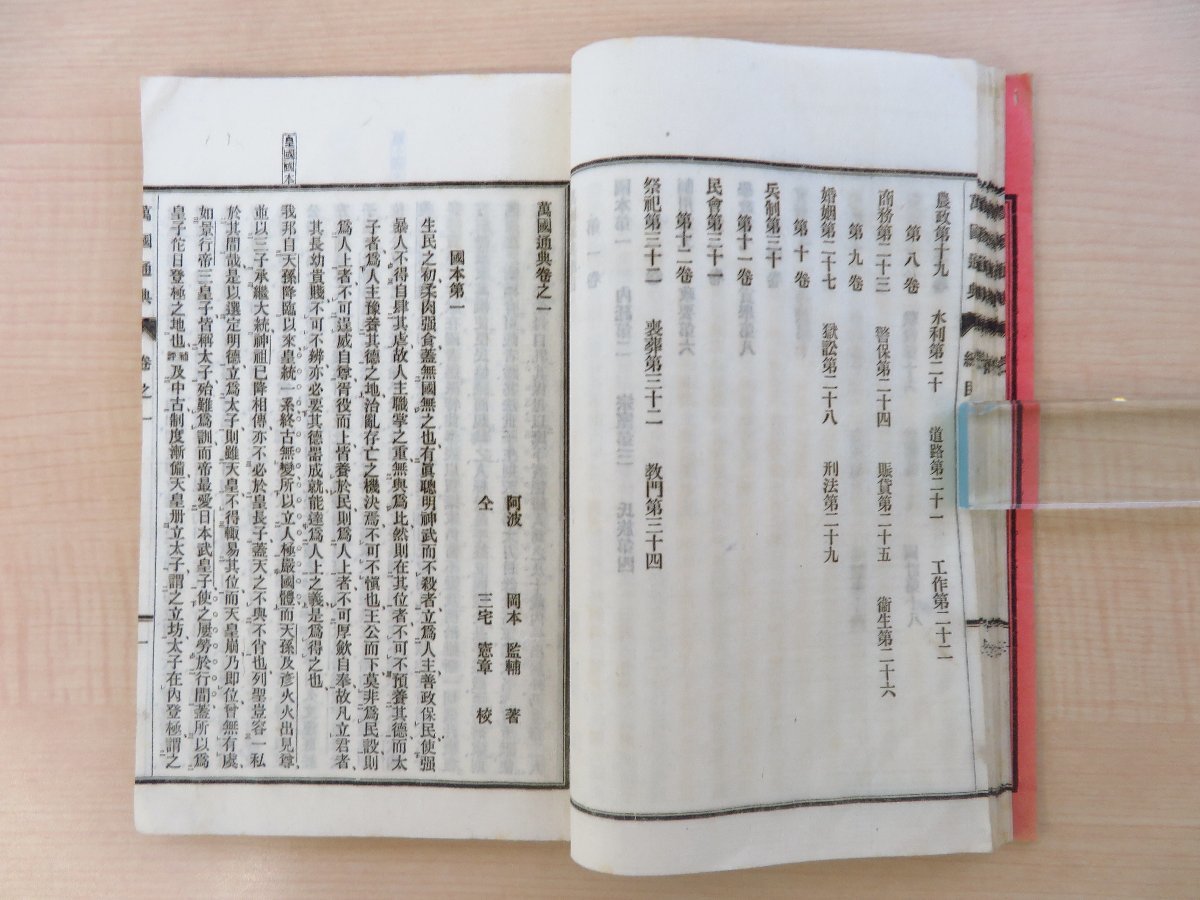 農政第十九　水利第二十　道路第二十一　工作第二十二
第八卷
商務第二十三　警保第二十四　賑貸第二十五　衞生第二十六
第九卷
婚姻第二十七　獄訟第二十八　刑法第二十九
第十卷
兵制第三十
第十一卷
民會第三十一
第十二卷
祭祀第三十二　喪葬第三十二　教門第三十四
萬國通典卷之一
阿波　岡本　監輔　著
仝　三宅　憲章　校
國本第一
生民之初柔肉强食蓋無國無之也有眞聰明神武而不殺者立爲人主善政保民使强
暴人不得自肆其虐故人主職掌之重無與爲比然則在其位者不可不預養其德而太
子者爲人主豫養其德之地治亂存亡之機決焉不可不愼也王公而下莫非爲民設則
爲人上者不可逞威自尊胥役而上皆養於民則爲人上者不可厚歛自奉故凡立君者
其長幼貴賤不可不辨亦必要其德器成就能達爲人上之義是爲得之也
皇國國本
我邦自天孫降臨以來皇統一系終古無變所以立人極嚴國體而天孫及彥火火出見尊
並以三子承繼大統神祖已降相傳亦不必於皇長子蓋天之不與不肖也列聖豈容一私
於其間哉是以選定明德立爲太子則雖天皇不得輙易其位而天皇崩乃即位曾無有虞
如景行帝三皇子皆稱太子殆難爲訓而帝最愛日本武皇子使之屢勞於行間蓋所以爲
皇子佗日登極之地也補評及中古制度漸備天皇册立太子謂之立坊太子在內登極謂之
萬國通典　卷之一